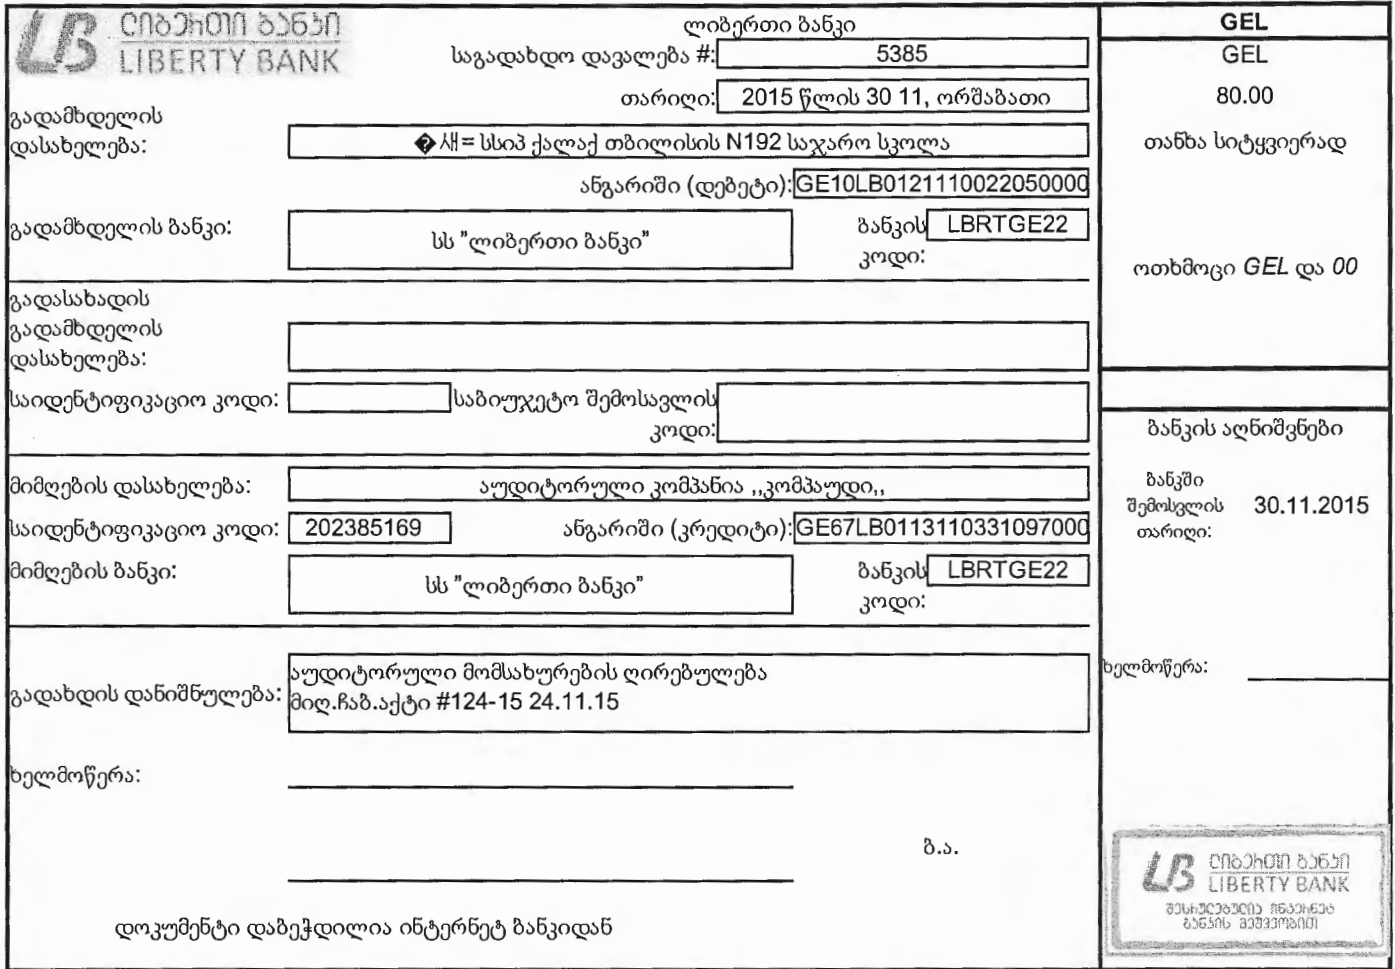 ლიბერთი ბანკი
LIBERTY BANK
ლიბერთი ბანკი
საგადახდო დავალება #: 5385
თარიღი: 2015 წლის 30 11, ორშაბათი
გადამხდელის
დასახელება: �새= სსიპ ქალაქ თბილისის N192 საჯარო სკოლა
ანგარიში (დებეტი): GE10LB0121110022050000
გადამხდელის ბანკი: სს "ლიბერთი ბანკი" ბანკის LBRTGE22
კოდი:
გადასახადის
გადამხდელის
დასახელება:
საიდენტიფიკაციო კოდი: საბიუჯეტო შემოსავლის
კოდი:
მიმღების დასახელება: აუდიტორული კომპანია ,,კომპაუდი,,
საიდენტიფიკაციო კოდი: 202385169 ანგარიში (კრედიტი): GE67LB0113110331097000
მიმღების ბანკი: სს "ლიბერთი ბანკი" ბანკის LBRTGE22
კოდი:
აუდიტორული მომსახურების ღირებულება
გადახდის დანიშნულება: მიღ.ჩაბ.აქტი #124-15 24.11.15
ხელმოწერა:
ბ.ა.
დოკუმენტი დაბეჭდილია ინტერნეტ ბანკიდან
GEL
GEL
80.00
თანხა სიტყვიერად
ოთხმოცი GEL და 00
ბანკის აღნიშვნები
ბანკში
შემოსვლის 30.11.2015
თარიღი:
ხელმოწერა:
ლიბერთი ბანკი
LIBERTY BANK
შესრულებულია ინტერნეტ
ბანკის მეშვეობით